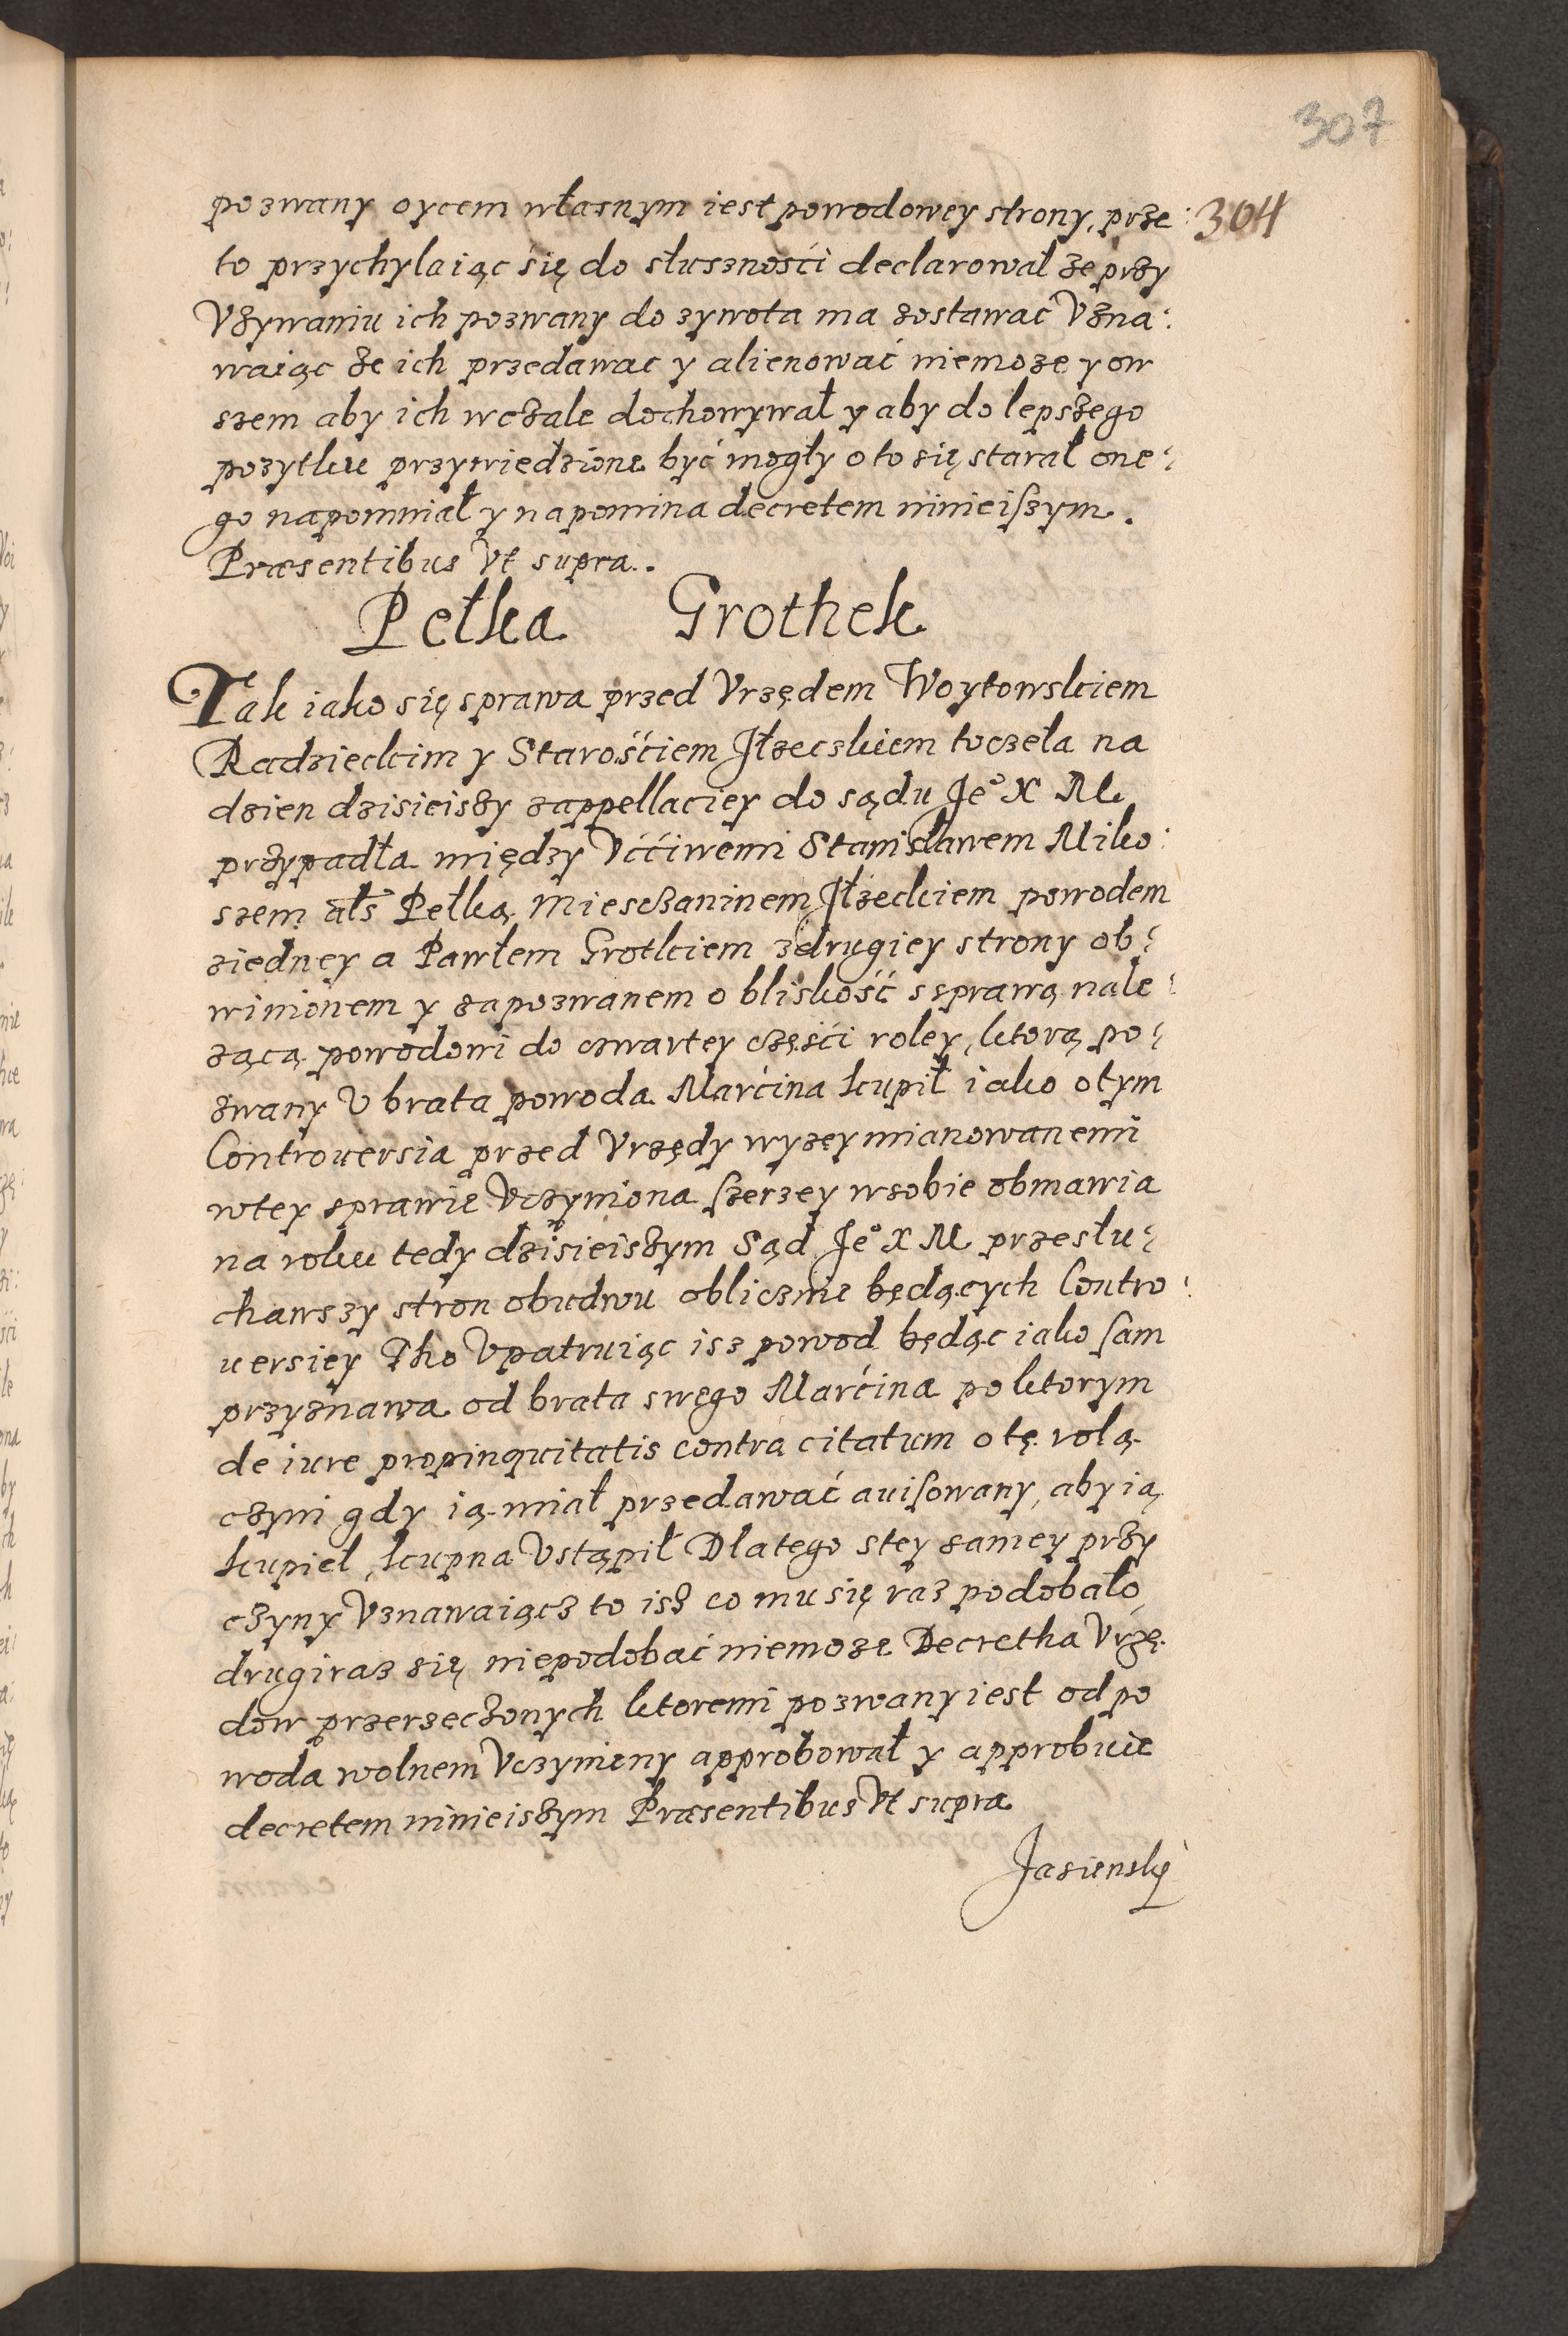 307
pozwany oycem własnym iest powodowey strony, prze: 304
to przychylaiąc się do słusznośći declarował ze przy
Vzywaniu ich pozwany do zywota ma zostawać Vzna:
waiąc ze ich przedawac y alienować niemoze y ow
szem aby ich wczale dochowywał y aby do lepszego
pozytku przywiedzione być mogły o to się starał one:
go napomniał y napomina decretem ninieiszym.
Præsentibus Vt supra.
Pełka Grothek
Tak iako się sprawa przed Vrzędem Woytowskiem
Radzieckim y Starośćiem Jłzeczkiem toczeła na
dzien dzisieiszy zappellaciey do sądu Je° X M
przypadła między Vććiwemi Stanisławem Miko:
szem als Pełką Miesczaninem Jłzeckiem powodem
ziedney a Pawłem Grotkiem zdrugiey strony ob:
winionem y zapozwanem o bliskość ssprawą nale:
zącą powodowi do czwartey częśći roley, ktorą po:
zwany V brata powoda Marćina kupił iako otym
Controuersia przed Vrzędy wyzey mianowanemi
wtey sprawie Vczyniona szerzey wsobie obmawia
na roku tedy dzisieiszym Sąd Je° X M przesłu:
chawszy stron obudwu oblicznie będących Contro:
uersiey Tho Vpatruiąc isz powod będąc iako sam
przyznawa od brata swego Marćina po ktorym
de iure propinquitatis contra citatum o tę rolą
czyni gdy ią miał przedawać auisowany, aby ią
kupieł, kupna Vstąpił Dlatego stey samey przy
czyny Vznawaiącz to isz co mu się raz podobało,
drugi raz się niepodobać niemoze Decretha Vrzę
dow przerzeczonych ktoremi pozwany iest od po
woda wolnem Vczyniony approbował y approbuie
decretem ninieiszym Præsentibus Vt supra
Jasienskÿ